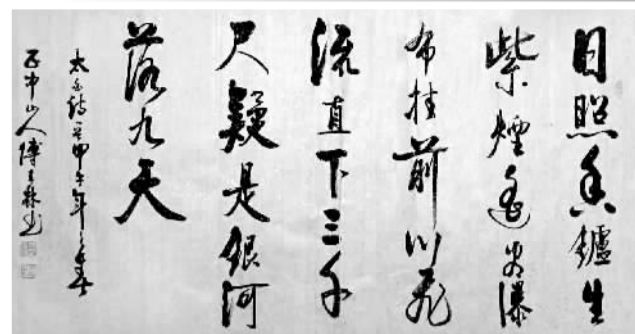 日照香鑪生
紫煙遙看瀑
布挂前川飛
流直下三千
尺疑是銀河
落九天
太白詩甲午年春
中山人傅